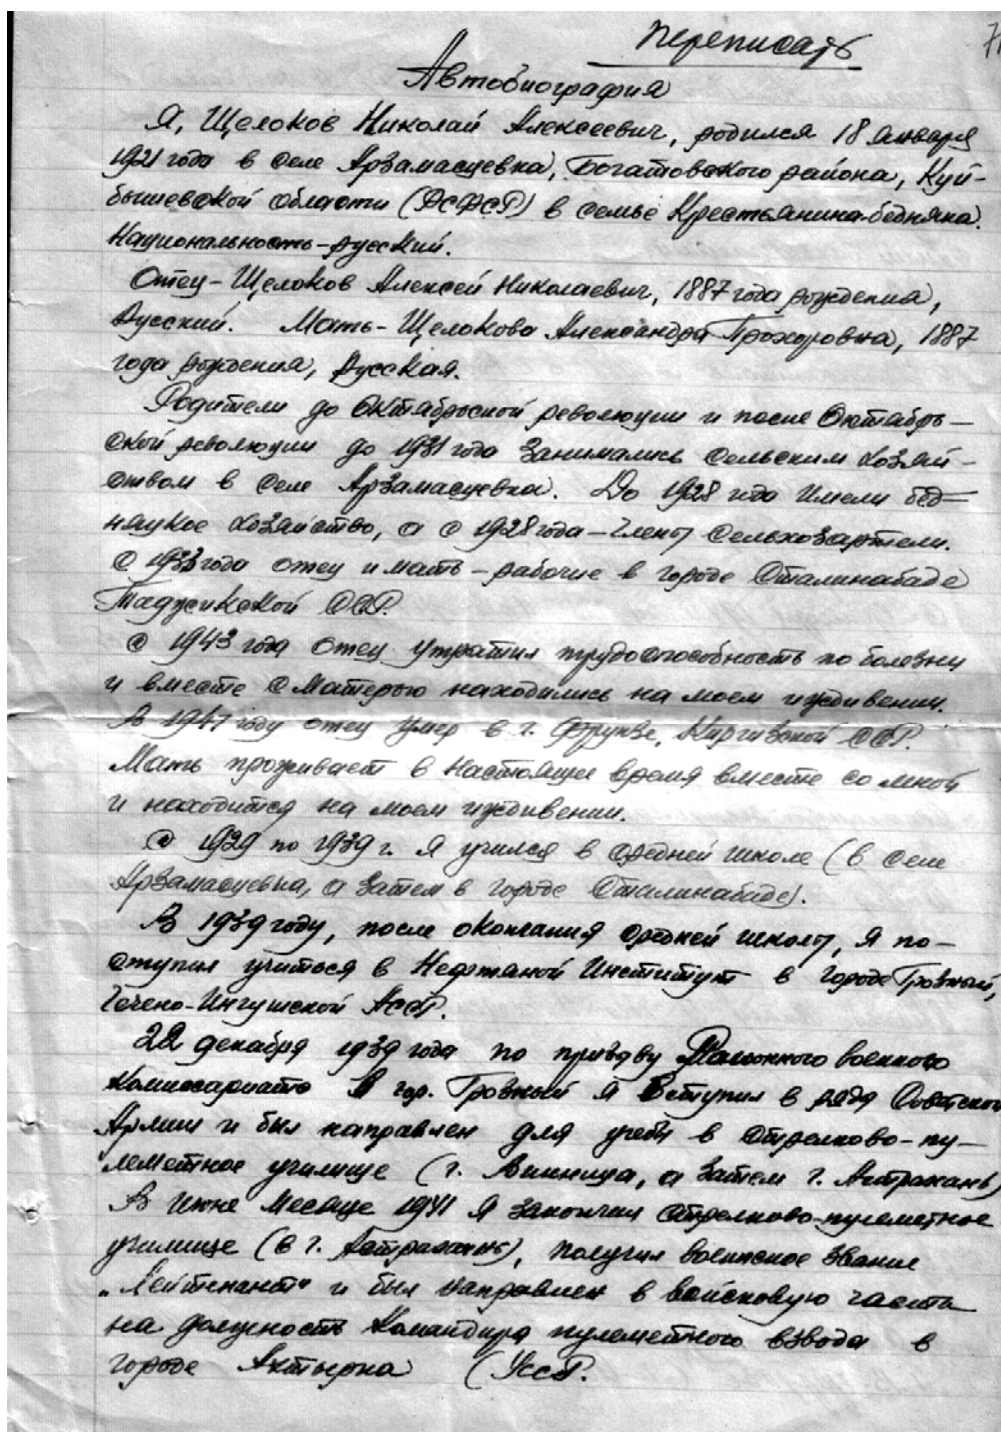 Переписать
Автобиография
Я, Щелоков Николай Алексеевич, родился 18 января
1921 года в селе Арзамасцевка, Богатовского района, Куй-
бышевской области (РСФСР) в семье крестьянина-бедняка.
Национальность – русский.
Отец – Щелоков Алексей Николаевич, 1887 года рождения,
русский. Мать – Щелокова Александра Прохоровна, 1887
года рождения, русская.
Родители до Октябрьской революции и после Октябрь-
ской революции до 1931 года занимались сельским хозяй-
ством в селе Арзамасцевка. До 1928 года имели бед-
няцкое хозяйство, а с 1928 года – члены сельхозартели.
С года отец и мать – рабочие в городе Сталинабаде
Таджикской ССР.
С 1943 года отец утратил трудоспособность по болезни
и вместе с матерью находились на моем иждивении.
В 1947 году отец умер в г. Фрунзе, Киргизской ССР.
Мать проживает в настоящее время вместе со мной
и находится на моем иждивении.
С 1929 по 1939 г. я учился в средней школе (в селе
Арзамасцевка, а затем в городе Сталинабаде).
В 1939 году, после окончания средней школы, я по-
ступил учиться в Нефтяной Институт в городе Грозный,
Чечено-Ингушской АССР.
22 декабря 1939 года по призыву Районного военного
комиссариата в гор. Грозный я вступил в ряды Советской
Армии и был направлен для учебы в стрелково-пу-
леметное училище (г. Винница, а затем г. Астрахань)
В июне месяце 1941 я закончил стрелково-пулеметное
училище (в г. Астрахань), получил воинское звание
„Лейтенант" и был направлен в войсковую часть
на должность командира пулеметного взвода в
городе Ахтырка (УССР.